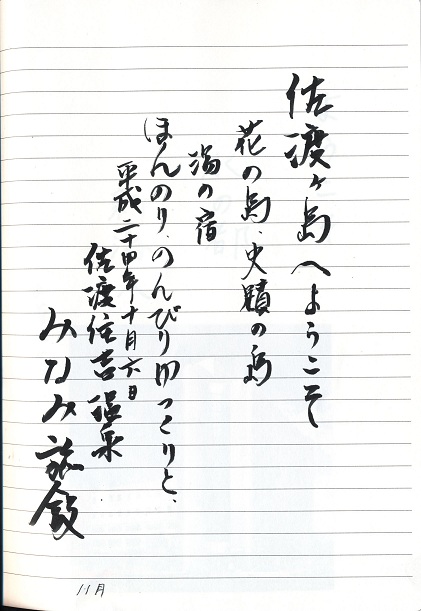 佐渡ヶ島へようこそ
花の島、史蹟の島
湯の宿
ほんのり、のんびりゆっくりと、
平成二十四年十月六日
佐渡住吉温泉
みなみ旅館
11月